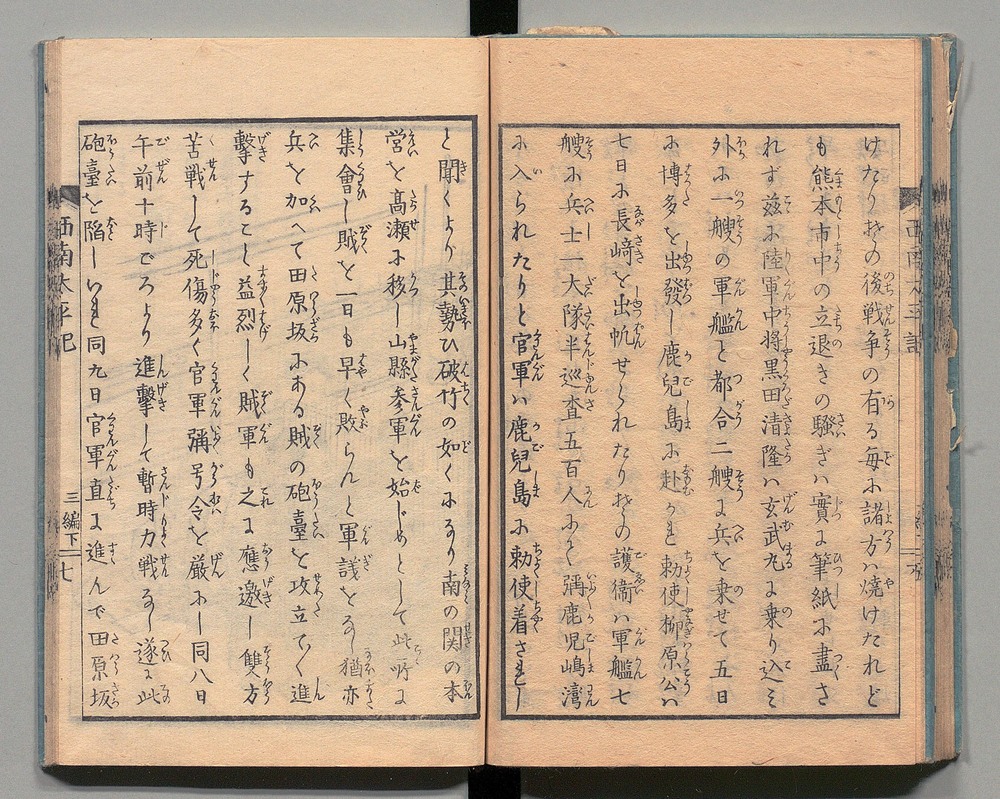 けたり其の後戦争の有る毎に諸方ハ焼けたれど
も熊本市中の立退きの騒ぎハ實に筆紙に盡さ
れず茲に陸軍中將黒田清隆ハ玄武丸に乗り込ミ
外に一艘の軍艦と都合二艘に兵を乗せて五日
に博多を出發し鹿兒島に赴かれ勅使柳原公ハ
七日に長﨑を出帆せられたり其の護衞ハ軍艦七
艘に兵士一大隊半巡査五百人にて彌鹿児嶋灣
に入られたりと官軍ハ鹿兒島に勅使着されし
と聞くより其勢ひ破竹の如くになり南の関の本
営を髙瀬に移し山縣参軍を始じめとして此所に
集會し賊を一日も早く敗らんと軍議をなし猶亦
兵を加へて田原坂にある賊の砲臺を攻立てく進
撃すること益烈しく賊軍も之に應邀し雙方
苦戦して死傷多く官軍彌号令を厳にし同八日
午前十時ごろより進撃して暫時力戦なし遂に此
砲臺を陥しいれ同九日官軍直に進んで田原坂
西南太平記
三編下
七